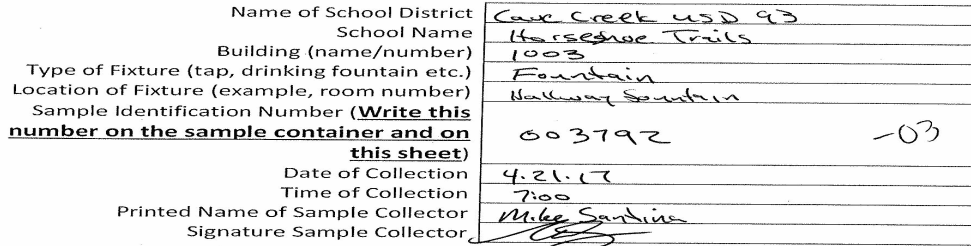 Name of School District Cave Creek USD 93
School Name Horseshoe Trails
Building (name/number) 1003
Type of Fixture (tap, drinking fountain etc.) Fountain
Location of Fixture (example, room number) Hallway Fountain
Sample Identification Number (Write this
number on the sample container and on 003792 -03
this sheet)
Date of Collection 4.21.17
Time of Collection 7:00
Printed Name of Sample Collector Mike Santina
Signature Sample Collector